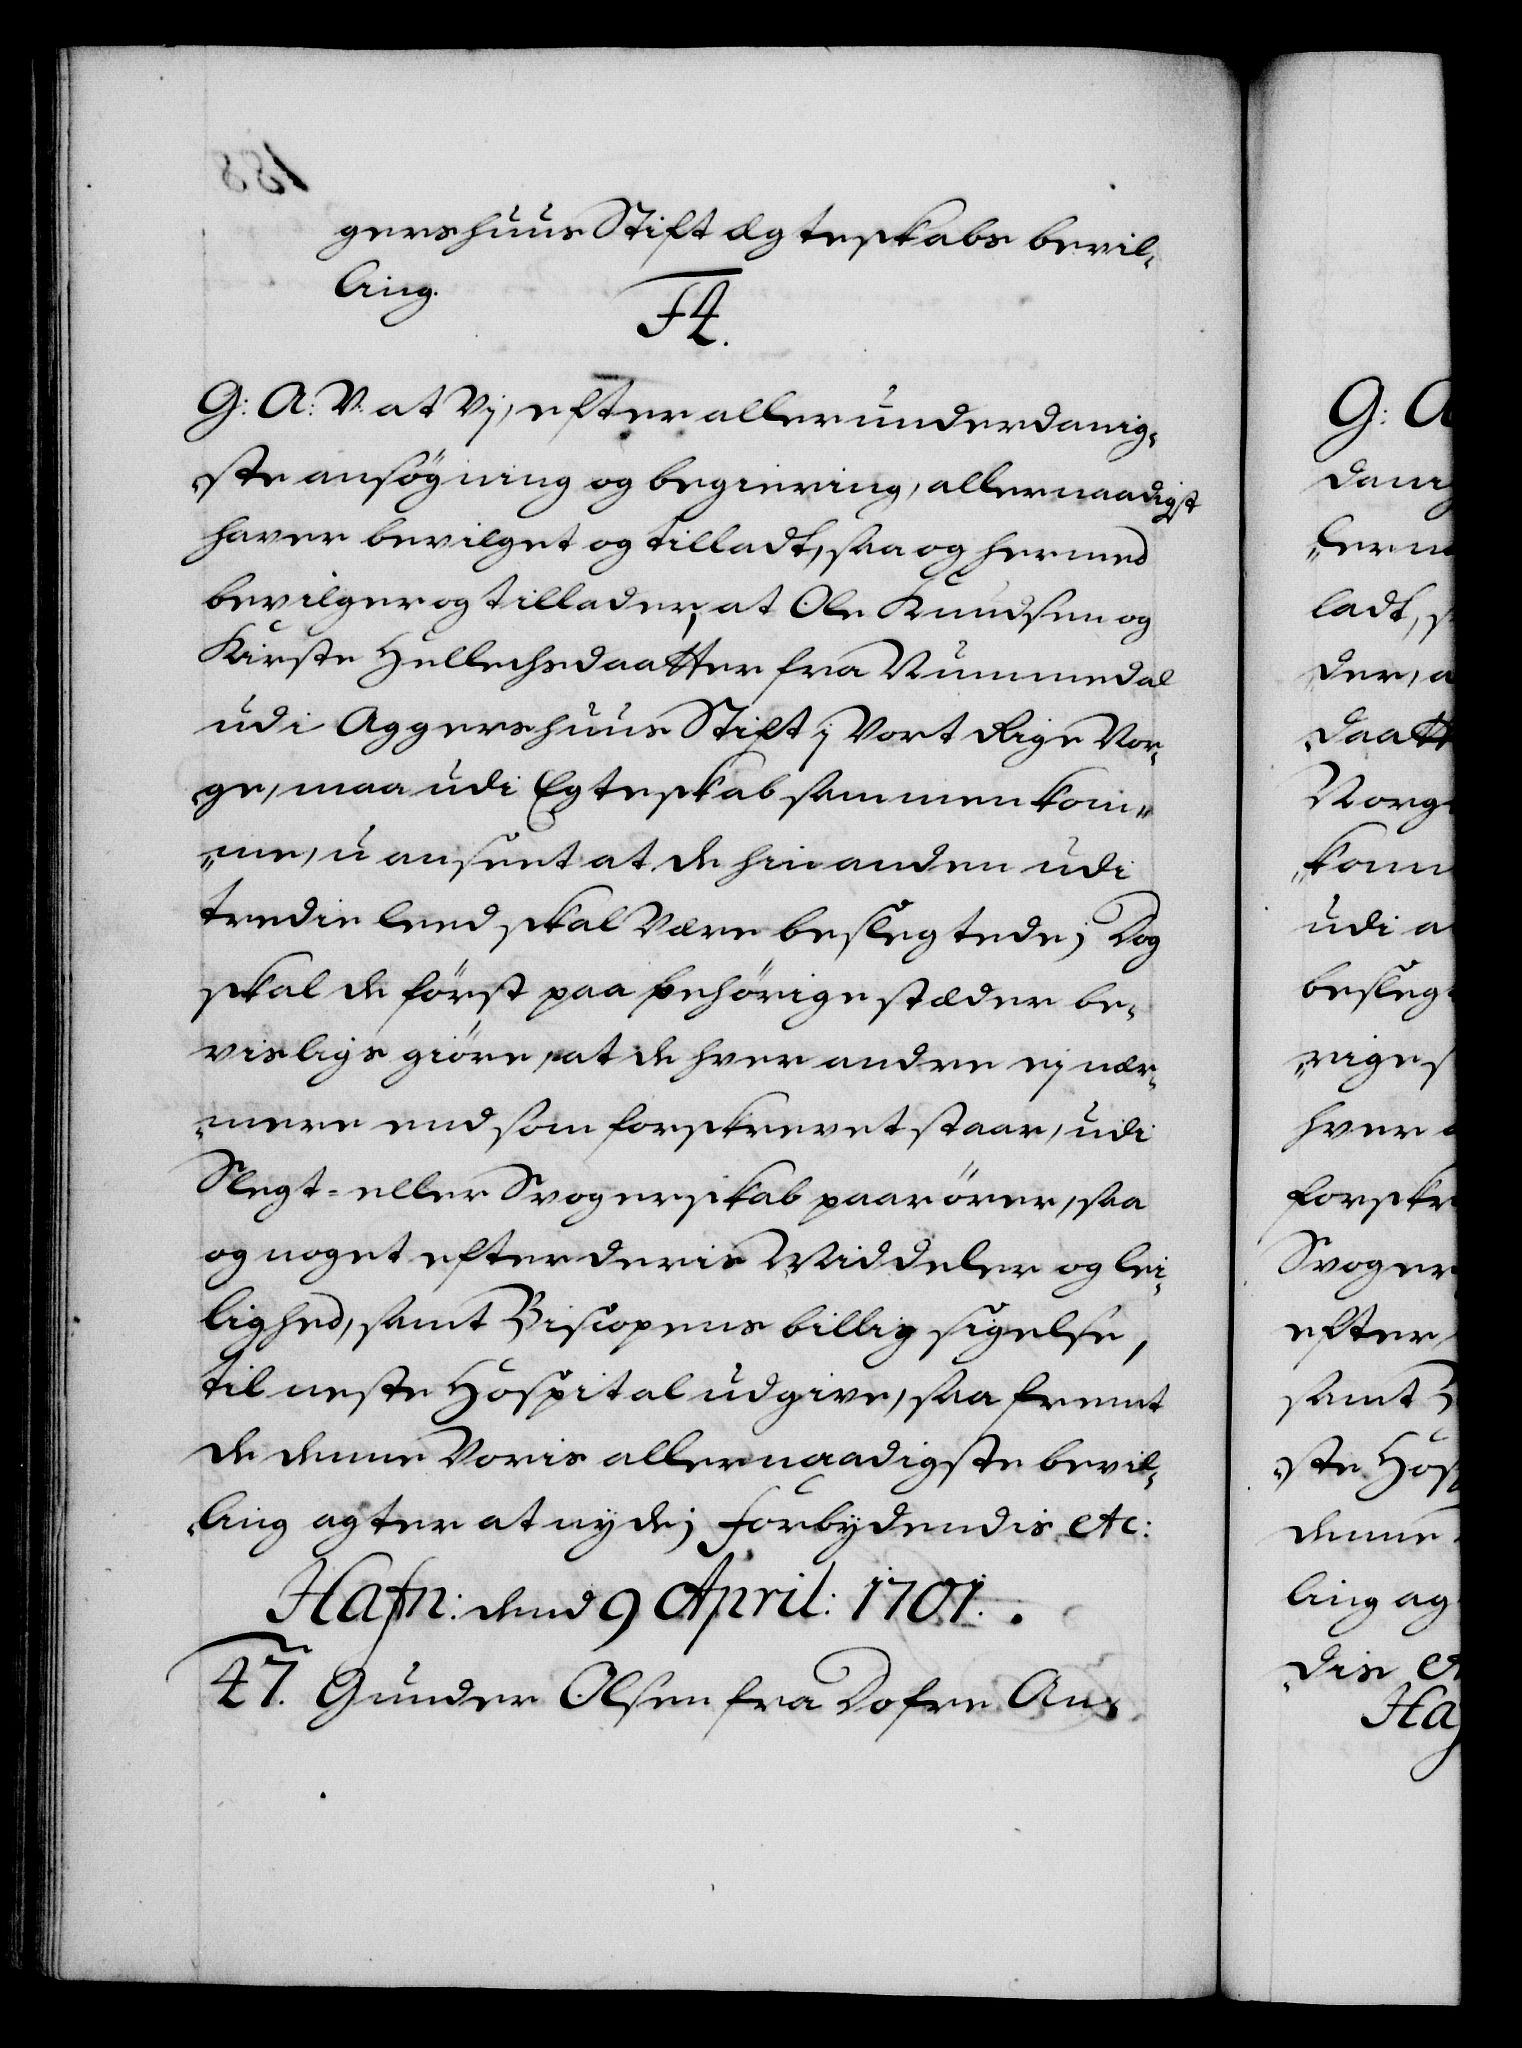 gershuus Stift Ægteskabs bevil-
ling.
F4.
G: A: V: at Vj, efter allerunderdanig-
ste ansögning og begiering, allernaadigst
haver bevilget og tilladt, saa og hermed
bevilger og tillader, at Ole Knudsen og
Kirste Hellechsdaatter fra Nummedal
udi Aggershuus Stift j Vort Rige Nor-
ge, maa udi Egteskab sammen kom-
me, uanseet at de hinanden udi
tredie leed skal være beslegtede; Dog
skal de först paa behörige stæder be-
visligs giöre, at de hver andre ej nær-
mere end som forskrevet staar, udi
Slegt- eller Svogerskab paarörer, saa
og noget efter deris Middeler og lei-
lighed, samt Biscopens billig sigelse,
til neste Hospital udgive, saa fremt
de denne Voris allernaadigste bevil-
ling agter at nyde; Forbydendis etc:
Hafn: dend 9 April: 1701.
47. Gunder Olsen fra Dofre An-
G: A
dani
lern
ladt, s
der, a
daatt
Norg
komm
udi a
besleg
rige s
hver
forskr
Svoger
efter
samt B
ste Hos
denne
ling ag
dis et
Haf